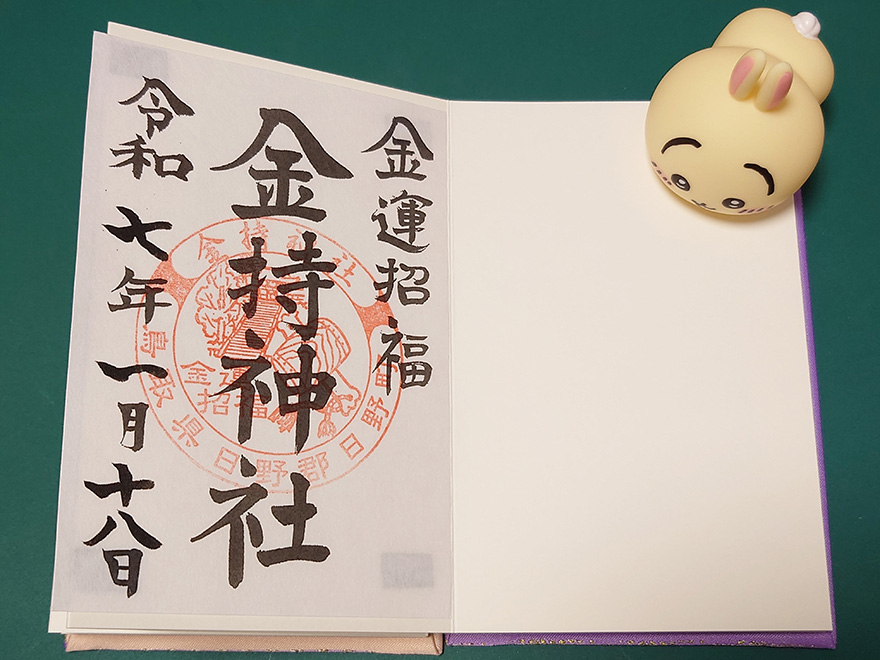 金運招福
金持神社
令和七年一月十八日
金持神社
鳥取県日野郡日野
金運
招福